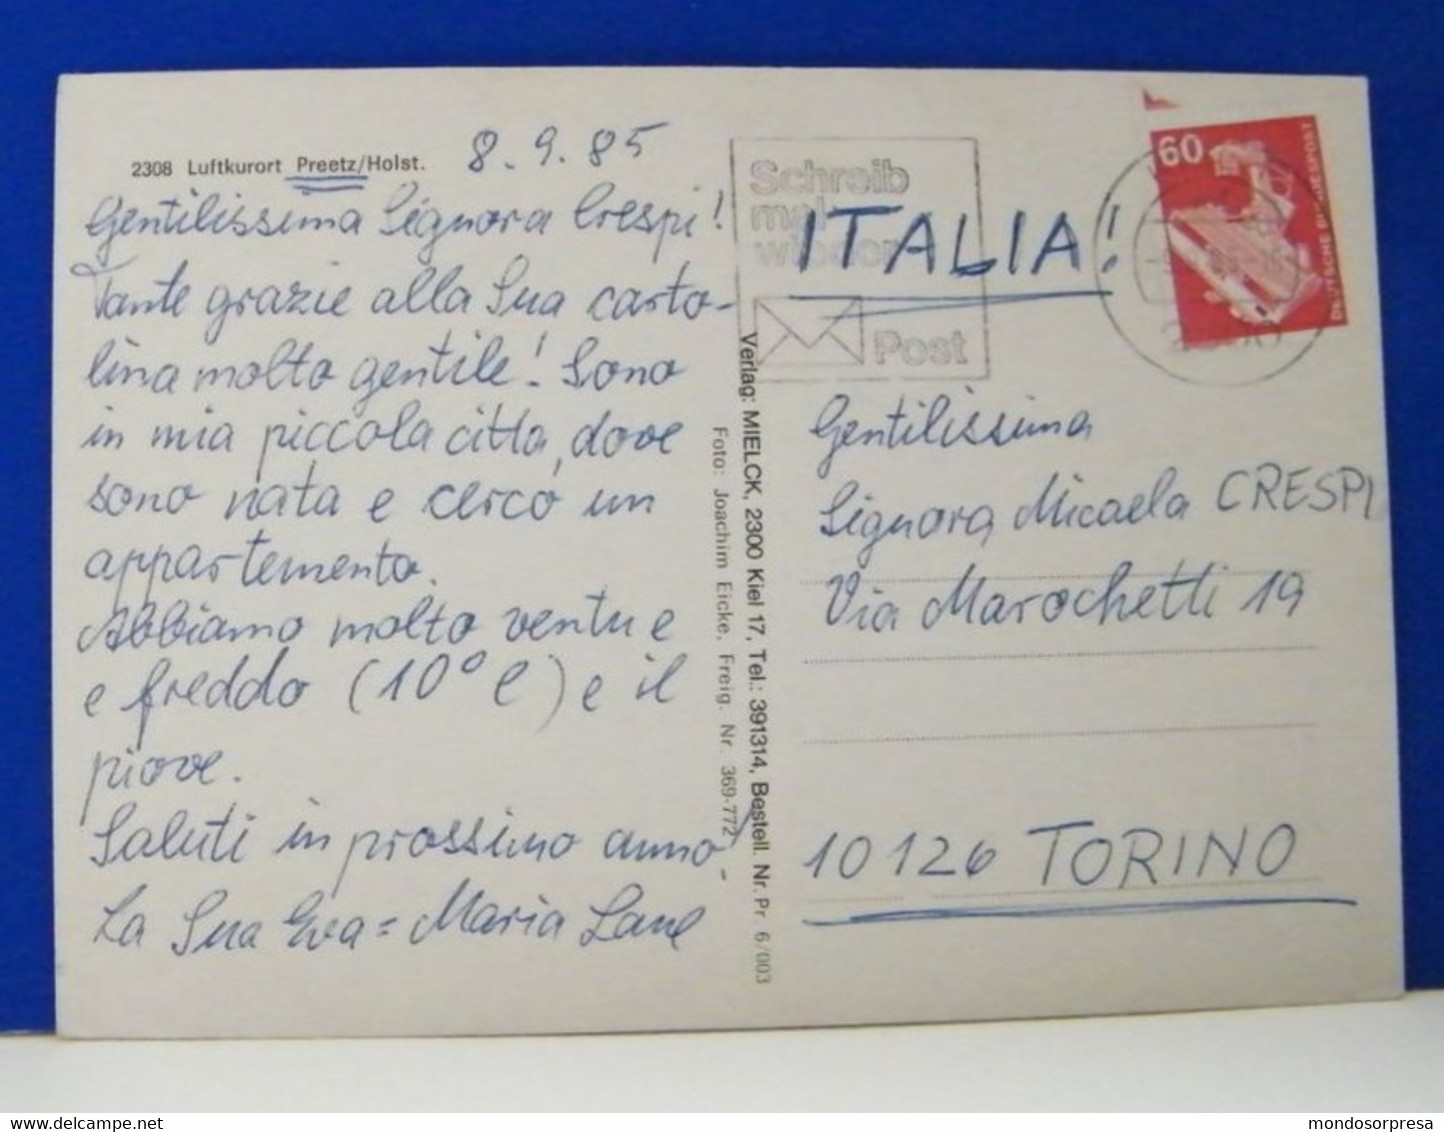 2308 Luftkurort Preetz/Holst.
8.9.85
Gentilissima Signora Crespi!
Tante grazie alla Sua carto-
lina molto gentile! Sono
in mia piccola citta, dove
sono nata e cerco un
appartemento.
Abbiamo molto ventu e
e freddo (10° C) e il
piove.
Saluti in prossimo anno-
La Sua Eva=Maria Lane
Verlag: MIELCK, 2300 Kiel 17, Tel.: 391314, Bestell. Nr. Pr 6/003
Foto: Joachim Eicke, Freig. Nr 369-772
Schreib
mal
wieder
Post
60
DEUTSCHE BUNDESPOST
ITALIA!
Gentilissima
Signora Micaela CRESPI
Via Marochetti 19
10126 TORINO
mondosorpresa